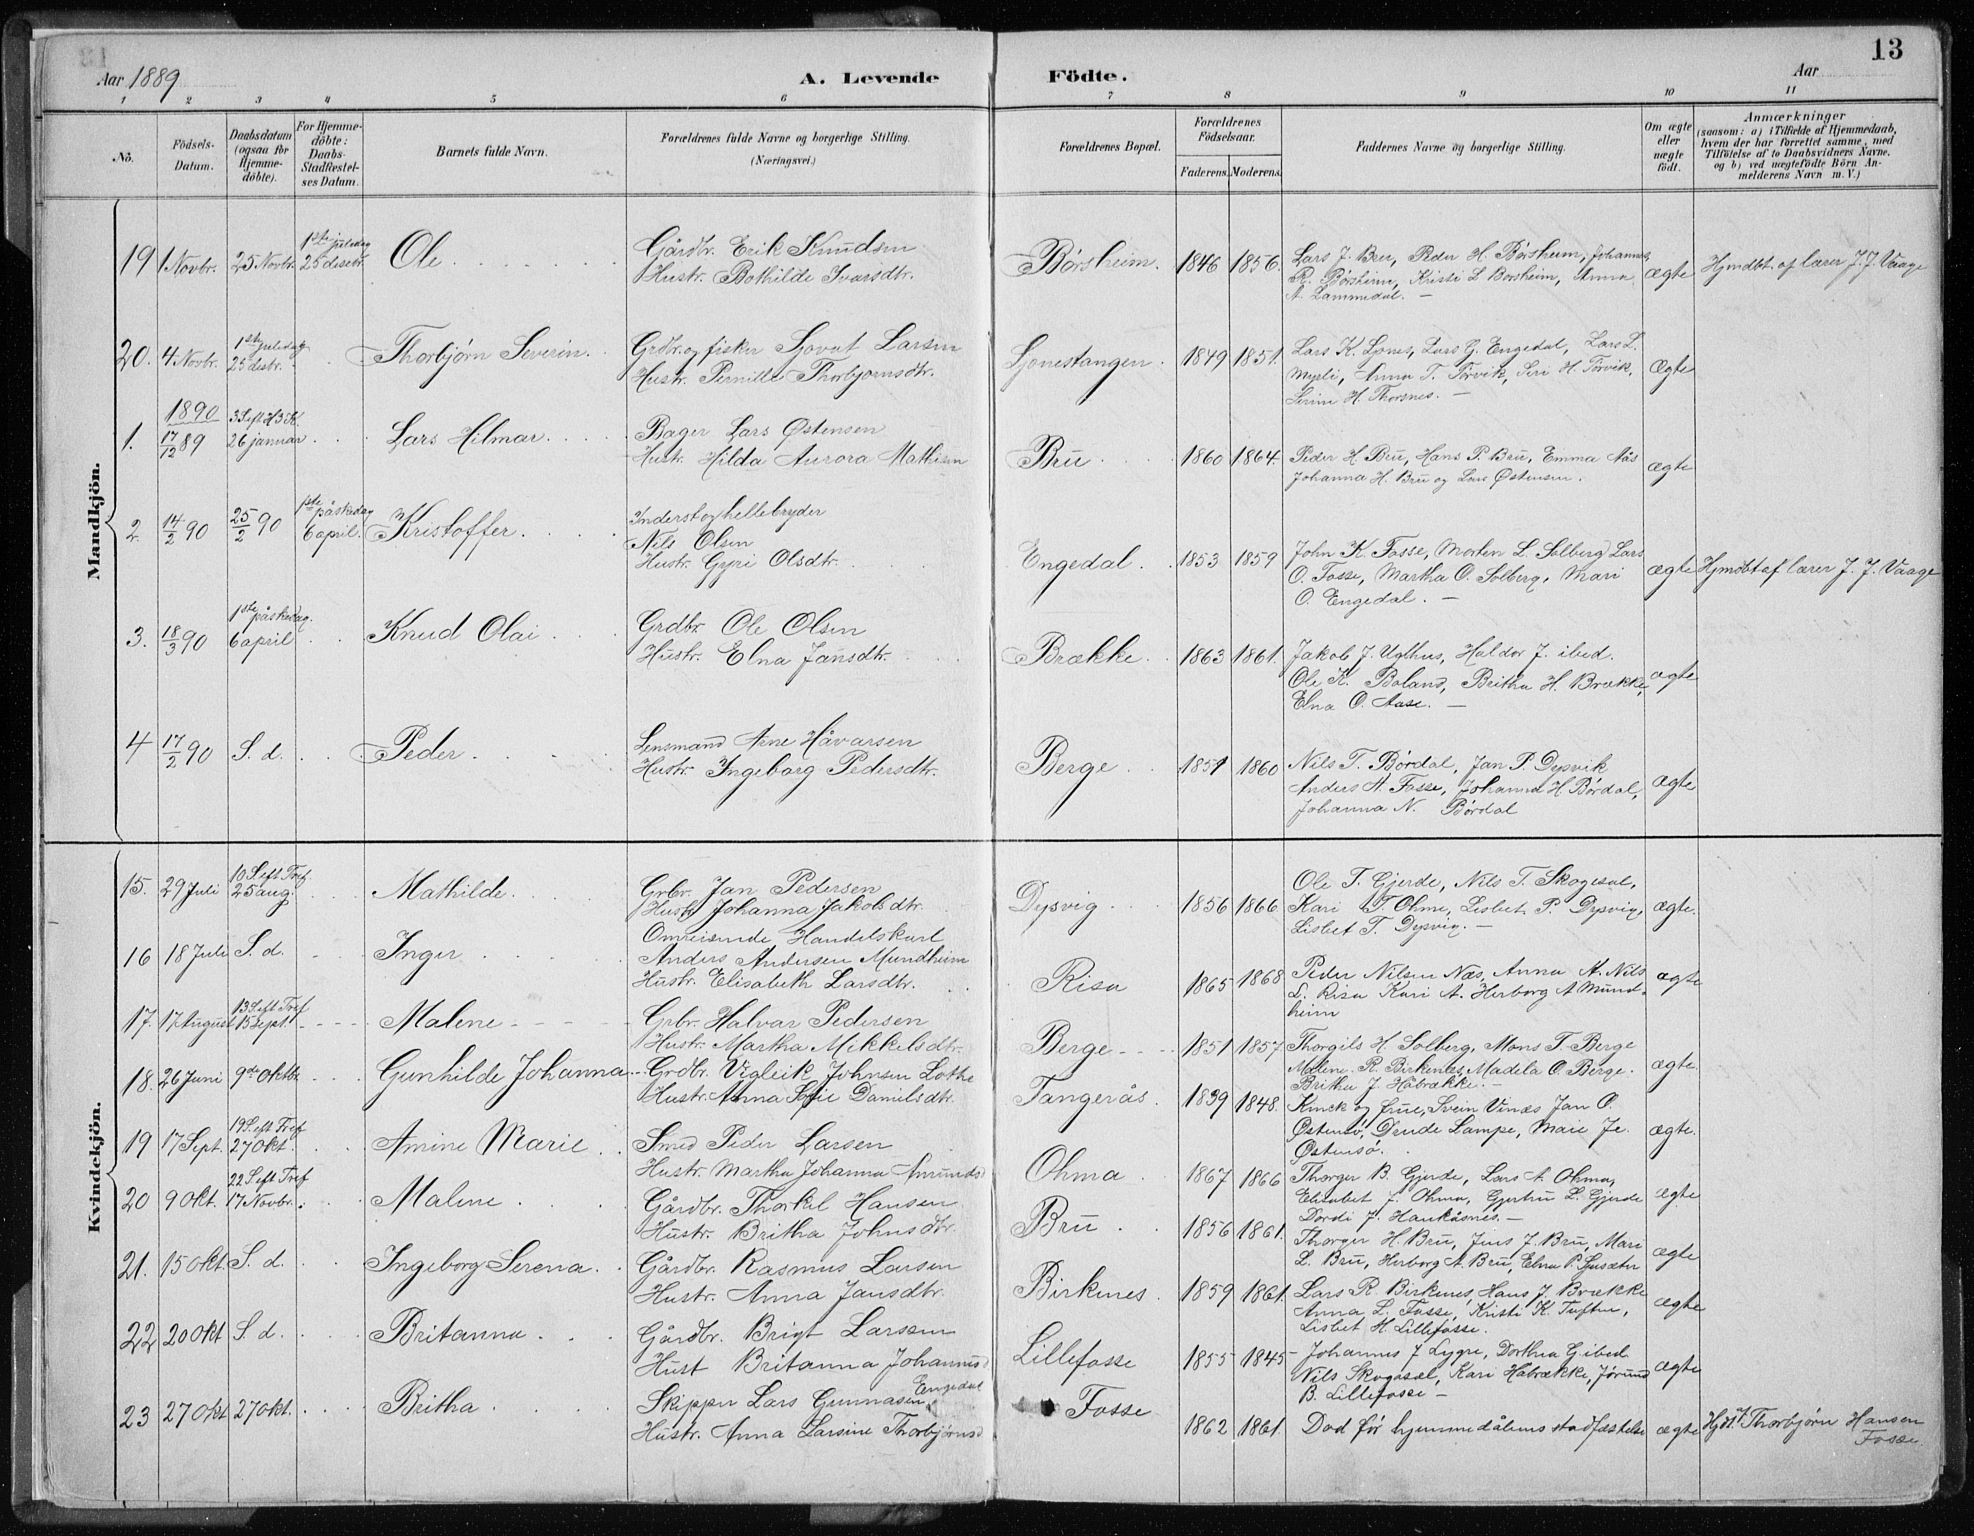 13
Aar 1889
A. Levende Födte.
Aar
1 2 3 4 5 6 7 8 9 10 11
No.
Födsels-Datum.
Daabsdatum (ogsaa for Hjemme-döbte).
For Hjemme-döbte: Daabs-Stadfestel-ses Datum.
Barnets fulde Navn.
Forældrenes fulde Navne og borgerlige Stilling. (Næringsvei.)
Forældrenes Bopæl.
Forældrenes Födselsaar.
Faderens. Moderens.
Faddernes Navne og borgerlige Stilling.
Om ægte eller uægte födt.
Anmærkninger (saasom: a) i Tilfælde af Hjemmedaab, hvem der har forrettet samme, med Tilföielse af to Daabsvidners Navne, og b) ved uægtefödte Börn An-melderens Navn m. V.)
Mandkjön.
19 1 Novbr. 25 Novbr. 1ste juledag 25 desebr. Ole
Gårdbr. Erik Knudsen
Hustr. Bothilde Ivarsdtr.
Børsheim. 1846 1856.
Lars J. Brer, Peder H. Børsheim, Johannes
R. Børsheim, Kristi L Borsheim, Anna
A. Lammedal. —
ægte Hjmdbt. af lærer J. J. Vaage
20. 4 Novbr. 1ste juledag 25 desbr. Thorbjørn Severin.
Grdbr. og fisker Sjovat Larsen
Hustr. Pernille Thorbjornsdtr.
Ljonestangen. 1849 1851.
Lars K. Ljones, Lars G. Engedal, Lars L.
Myrli, Anna T. Torvik, Siri H. Torvik,
Serine H. Thorsnes. —
ægte
1890
1. 17/12 89 3 S eft H 3 K. 26 januar Lars Hilmar
Bager Lars Østensen
Hustr. Hilda Aurora Mathisen
Bru 1860 1864.
Peder H Bru, Hans P. Bru, Emma Aas
Johanna H. Bru og Lars Østensen.
ægte
2. 14/2 90 25/2 90 1ste påskedag 6 april. Kristoffer.
Inderst og hellebryder
Nils Olsen
Hustr. Gyri Olsdtr.
Engedal. 1853 1859
John K. Fosse, Morten L. Solberg, Lars
O. Fosse, Martha O. Solberg, Mari
O. Engedal. —
ægte Hjmdbt af lærer J. J. Vaage
3. 18/3 90 1ste påskedag. 6 april Knud Olai
Grdbr. Ole Olsen
Hustr. Elna Jansdtr.
Brække. 1863 1861.
Jakob J. Uglhus, Haldor J. ibid.
Ole K. Boland, Britha H. Brække,
Elna O. Aase. —
ægte
4 17/2 90 S. d. Peder
Lensmand Arne Håvarsen
Hustr. Ingeborg Pedersdtr.
Berge 1851 1860
Nils T. Børdal, Jan P. Dysvik
Anders A. Fosse, Johanna H Børdal,
Johanna N. Børdal
ægte
Kvindekjön.
15. 29 Juli 10 S eft Tref 25 aug. Mathilde.
Grbr. Jan Pedersen
Hustr. Johanna Jakobsdtr.
Dysvig 1856 1866
Ole T. Gjerde, Nils T. Skogesal,
Kari T. Ohme, Lisbet P. Dysvig,
Lisbet T. Dysvig. —
ægte.
16 18 Juli S. d. Inger
Omreisende Handelskarl
Anders Andersen Mundheim
Hustr. Elisabeth Larsdtr.
Risa 1865 1868
Peder Nilsen Næs, Anna A. Nils
L. Risa Kari A. Herborg A Mund-
heim
ægte
17. 17 August 13 S eft Tref 15 Sept. Malene
Grbr. Halvar Pedersen
Hustr. Martha Mikkelsdtr.
Berge 1851 1857
Thorgils H. Solberg, Mons T. Berge
Malene R. Birkenes, Madela O Berge.
Britha J. Håbrække. —
ægte.
18. 26 Juni 9de Oktbr. Gunhilde Johanna
Grdbr. Vigleik Johnsen Lothe
Hustr. Anna Sofie Danielsdtr.
Tangerås. 1839 1848.
Kinck og frue, Svein Vinæs Jan O.
Østensø, Dende Lampe, Marie Je.
Østensø.
ægte.
19 17 Sept. 19 S. eft Tref 27 Okt. Amine Marie
Smed Peder Larsen
Hustr. Martha Johanna Amundsd
Ohma 1867 1866
Thorger B. Gjerde, Lars A. Ohma,
Elisabet J. Ohma, Gjertru L. Gjerde
Dordi J. Haukåsnes. —
ægte
20 9 Okt. 22 S eft Tref 17 Novbr. Malene
Gårdbr. Thorkel Hansen
Hustr. Britha Johnsdtr.
Bru 1856 1861.
Thorger H. Bru, Jins J. Bru, Mari
L. Bru, Herborg A. Bru, Elna P. Gjusæter
ægte
21. 15 Okt S. d. Ingeborg Serena
Gårdbr. Rasmus Larsen
Hustr. Anna Jansdtr.
Birkenes. 1859 1861.
Lars R. Birkenes, Hans J. Brække
Anna L. Fosse, Kristi K. Tuften,
Lisbet H. Lillefosse.
ægte
22 20 Okt S. d. Britanna
Gårdbr. Brigt Larsen
Hust Britanna Johannesd
Lillefosse 1855 1845
Johannes J Lygre, Dorthea G. ibid
Nils Skogasel, Kari Håbrække, Jørund
B. Lillefosse —
ægte
23 27 Okt 27 Okt. Britha
Skipper Lars Gunnasen Engedal
Hustr. Anna Larsine Thorbjørnsd
Fosse 1862 1861.
Død før hjemmedåbens stadfæstelse
ægte Hjdt. af Thorbjørn Hansen
Fosse